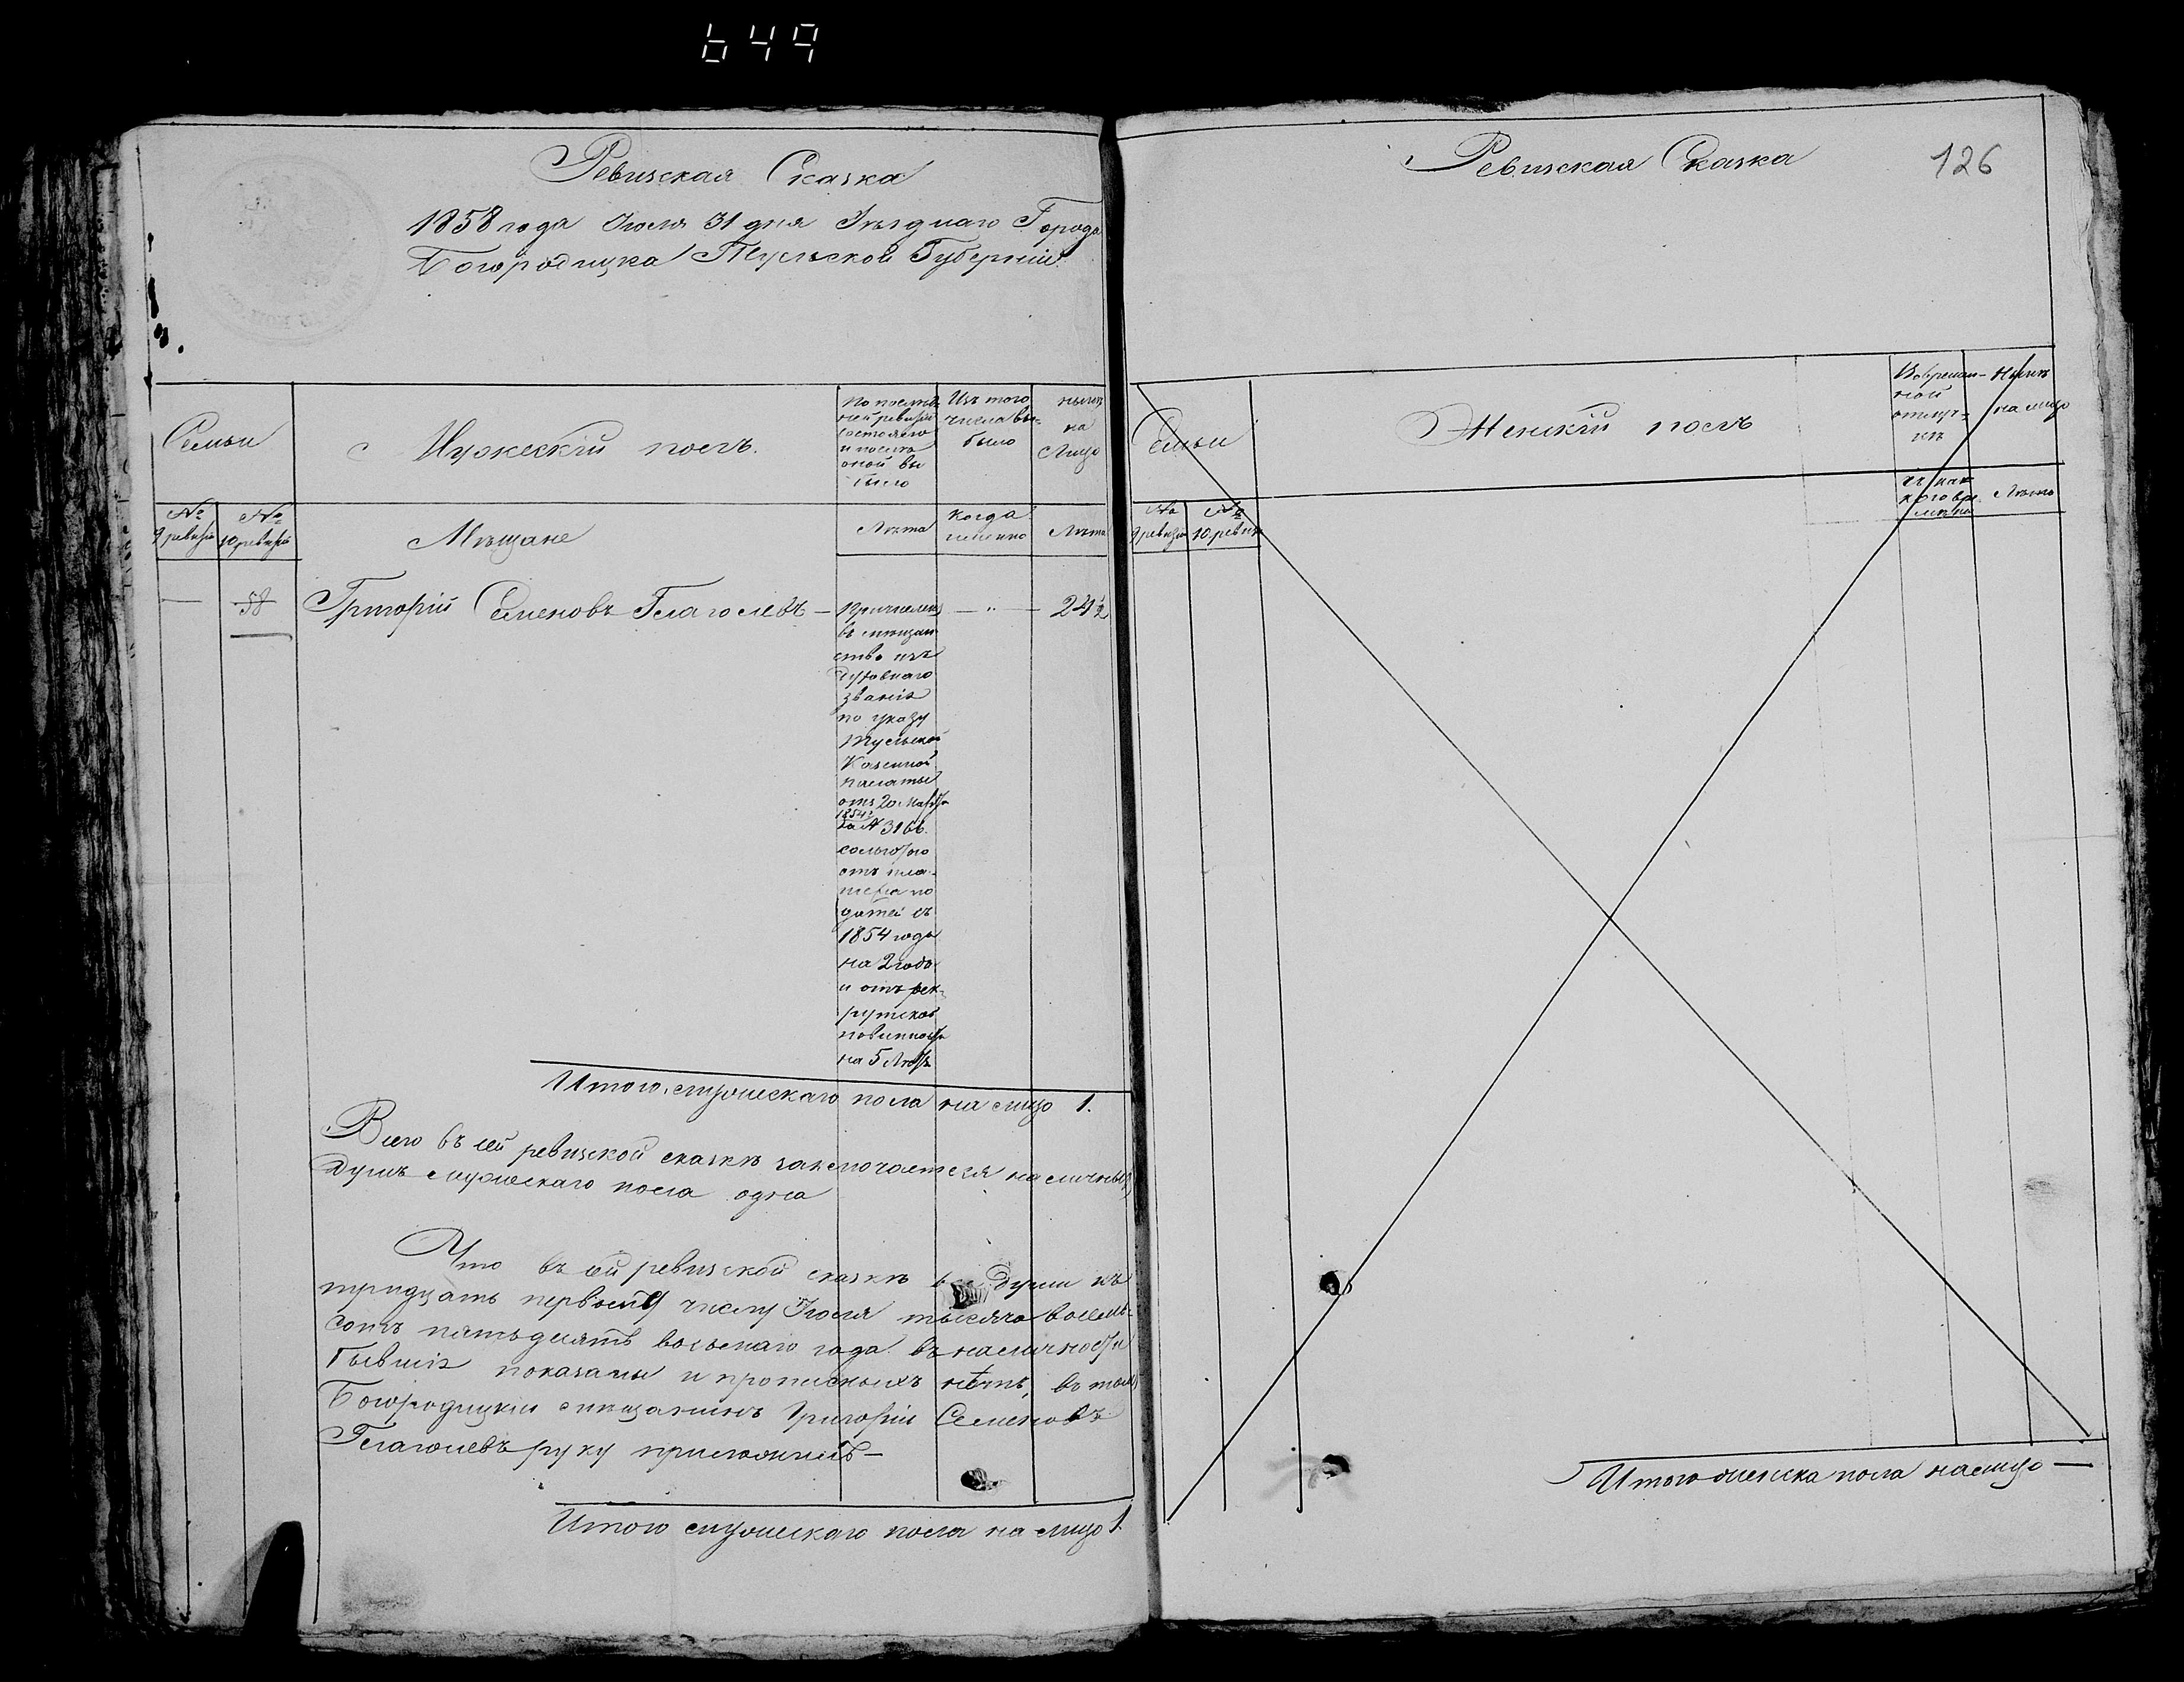 649
Ревизская Сказка
1858 года Июля 31 дня Уѣзднаго Города
Богородицка Тульской Губерніи
Семьи
Мужескій полъ.
По послѣд-
ней ревизіи
состояло
и послѣ
оной вы
было
Изъ того
числа вы-
было
нынѣ
на
Лицо
№
9 ревизіи
№
10 ревизіи
Мѣщане
Лѣта
когда
именно
Лѣта
— 58 Григорій Семеновъ Глаголевъ — причислен — " — 24½
въ мѣщан
ство изъ
духовнаго
званія
по указу
Тульской
Казенной
палаты
отъ 20 Марта
1854 г
за № 3166.
сольготою
отъ пла-
тежа по
датей съ
1854 года
на 2 года
и отъ рек-
рутской
повинности
на 5 Лѣтъ
Итого мужескаго пола на лицо 1.
Всего въ сей ревизской сказкѣ заключается наличныхъ
душъ мужескаго пола одна
Что въ сей ревизской сказкѣ все души къ
тридцать первому числу Июля тысяча восемь-
сотъ пятьдесятъ восьмаго года въ наличности
бывшія показаны и прописныхъ нѣтъ, въ томъ
Богородицкій мѣщанинъ Григорій Семеновъ
Глаголевъ руку приложилъ —
Итого мужескаго пола на лицо 1
Ревизская Сказка
126
Семьи
Женскій полъ
Во времен-
ной
отлуч-
кѣ
Нынѣ
на лицо
№
9 ревизіи
№
10 ревизіи
съ ка
кого вре
мѣни
Лѣта
Итого женска пола налицо —